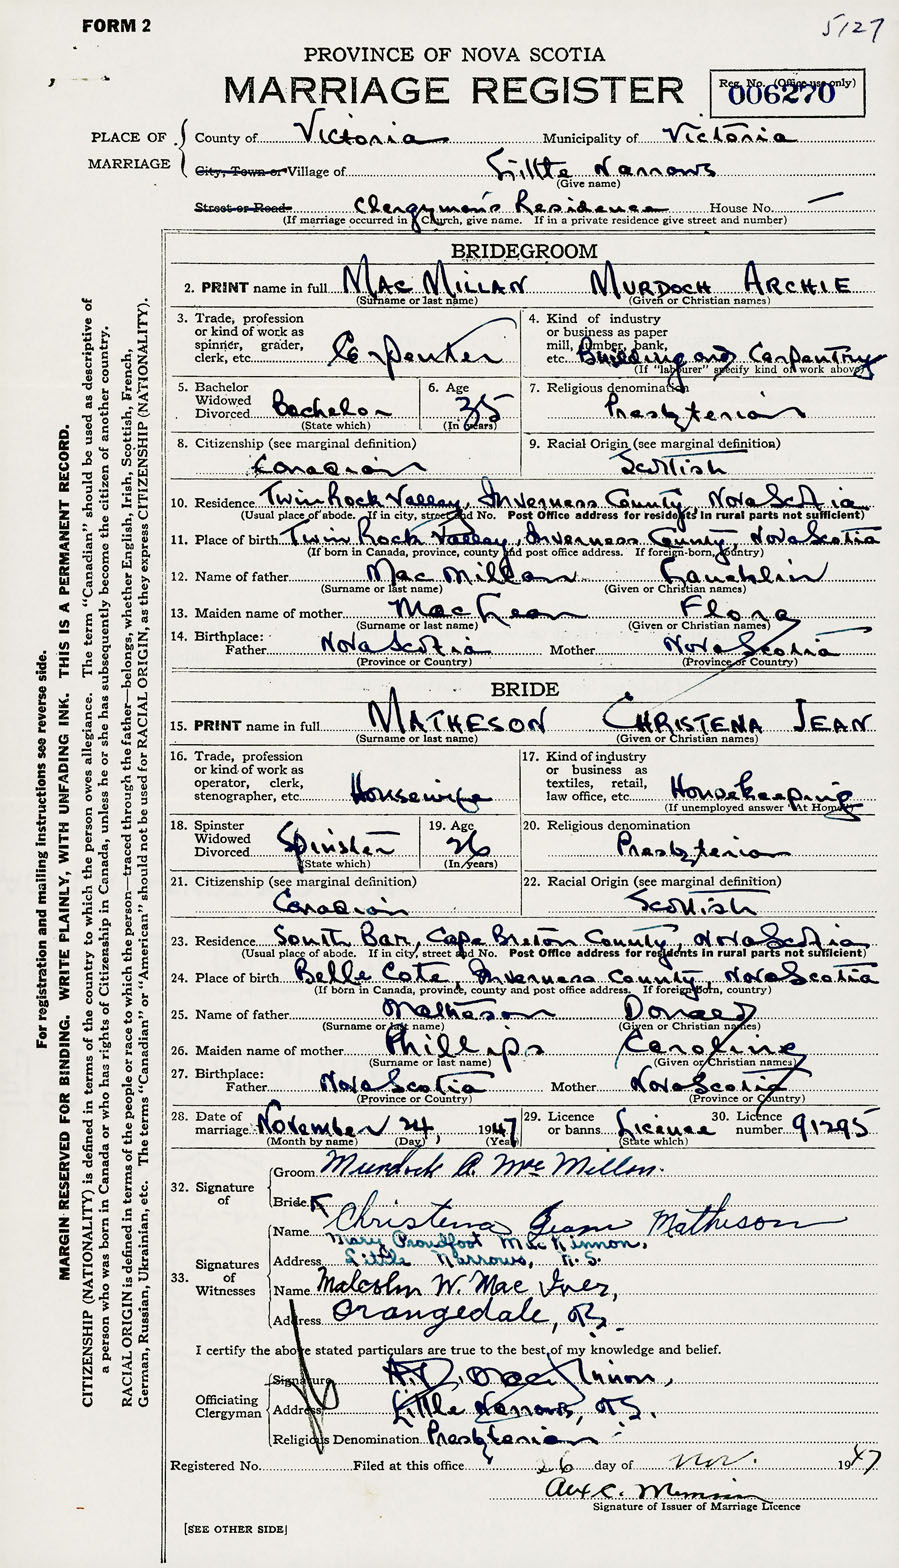 FORM 2
5127
PROVINCE OF NOVA SCOTIA
MARRIAGE REGISTER
Reg. No. (Office use only)
006270
PLACE OF MARRIAGE
County of Victoria Municipality of Victoria
City, Town or Village of Little Narrows
(Give name)
Street or Road Clergyman's Residence House No. —
(If marriage occurred in Church, give name. If in a private residence give street and number)
BRIDEGROOM
2. PRINT name in full MACMILLAN MURDOCH ARCHIE
(Surname or last name) (Given or Christian names)
3. Trade, profession or kind of work as spinner, grader, clerk, etc. Carpenter
4. Kind of industry or business as paper mill, lumber, bank, etc. Building and Carpentry
(If "labourer" specify kind of work above)
5. Bachelor Widowed Divorced Bachelor
(State which)
6. Age 35
(In years)
7. Religious denomination Presbyterian
8. Citizenship (see marginal definition) Canadian
9. Racial Origin (see marginal definition) Scottish
10. Residence Twin Rock Valley, Inverness County, Nova Scotia
(Usual place of abode. If in city, street and No. Post Office address for residents in rural parts not sufficient)
11. Place of birth Twin Rock Valley, Inverness County, Nova Scotia
(If born in Canada, province, county and post office address. If foreign-born, country)
12. Name of father MacMillan Lauchlin
(Surname or last name) (Given or Christian names)
13. Maiden name of mother MacLean Flora
(Surname or last name) (Given or Christian names)
14. Birthplace: Father Nova Scotia Mother Nova Scotia
(Province or Country) (Province or Country)
BRIDE
15. PRINT name in full MATHESON CHRISTENA JEAN
(Surname or last name) (Given or Christian names)
16. Trade, profession or kind of work as operator, clerk, stenographer, etc. Housewife
17. Kind of industry or business as textiles, retail, law office, etc. Housekeeping
(If unemployed answer "At Home")
18. Spinster Widowed Divorced Spinster
(State which)
19. Age 26
(In years)
20. Religious denomination Presbyterian
21. Citizenship (see marginal definition) Canadian
22. Racial Origin (see marginal definition) Scottish
23. Residence South Bar, Cape Breton County, Nova Scotia
(Usual place of abode. If in city, street and No. Post Office address for residents in rural parts not sufficient)
24. Place of birth Belle Cote, Inverness County, Nova Scotia
(If born in Canada, province, county and post office address. If foreign-born, country)
25. Name of father Matheson Donald
(Surname or last name) (Given or Christian names)
26. Maiden name of mother Phillips Caroline
(Surname or last name) (Given or Christian names)
27. Birthplace: Father Nova Scotia Mother Nova Scotia
(Province or Country) (Province or Country)
28. Date of marriage November 24, 1947
(Month by name) (Day) (Year)
29. Licence or banns Licence
(State which)
30. Licence number 91295
32. Signature of
Groom Murdock A. McMillan.
Bride Christena Jean Matheson
33. Signatures of Witnesses
Name Mary Proudfoot MacKinnon,
Address Little Narrows, N.S.
Name Malcolm W. Mac Iver,
Address Orangedale, N.S.
I certify the above stated particulars are true to the best of my knowledge and belief.
Officiating Clergyman
Signature A.D. MacKinnon,
Address Little Narrows, N.S.
Religious Denomination Presbyterian
Registered No. Filed at this office 26 day of Nov. 1947
Signature of Issuer of Marriage Licence
[SEE OTHER SIDE]
For registration and mailing instructions see reverse side.
MARGIN RESERVED FOR BINDING. WRITE PLAINLY, WITH UNFADING INK. THIS IS A PERMANENT RECORD.
CITIZENSHIP (NATIONALITY) is defined in terms of the country to which the person owes allegiance. The term "Canadian" should be used as descriptive of
a person who was born in Canada or who has rights of Citizenship in Canada, unless he or she has subsequently become the citizen of another country.
RACIAL ORIGIN is defined in terms of the people or race to which the person—traced through the father—belongs, whether English, Irish, Scottish, French,
German, Russian, Ukrainian, etc. The terms "Canadian" or "American" should not be used for RACIAL ORIGIN, as they express CITIZENSHIP (NATIONALITY).